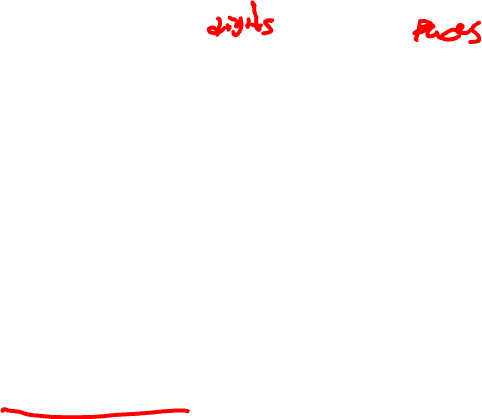 digits faces